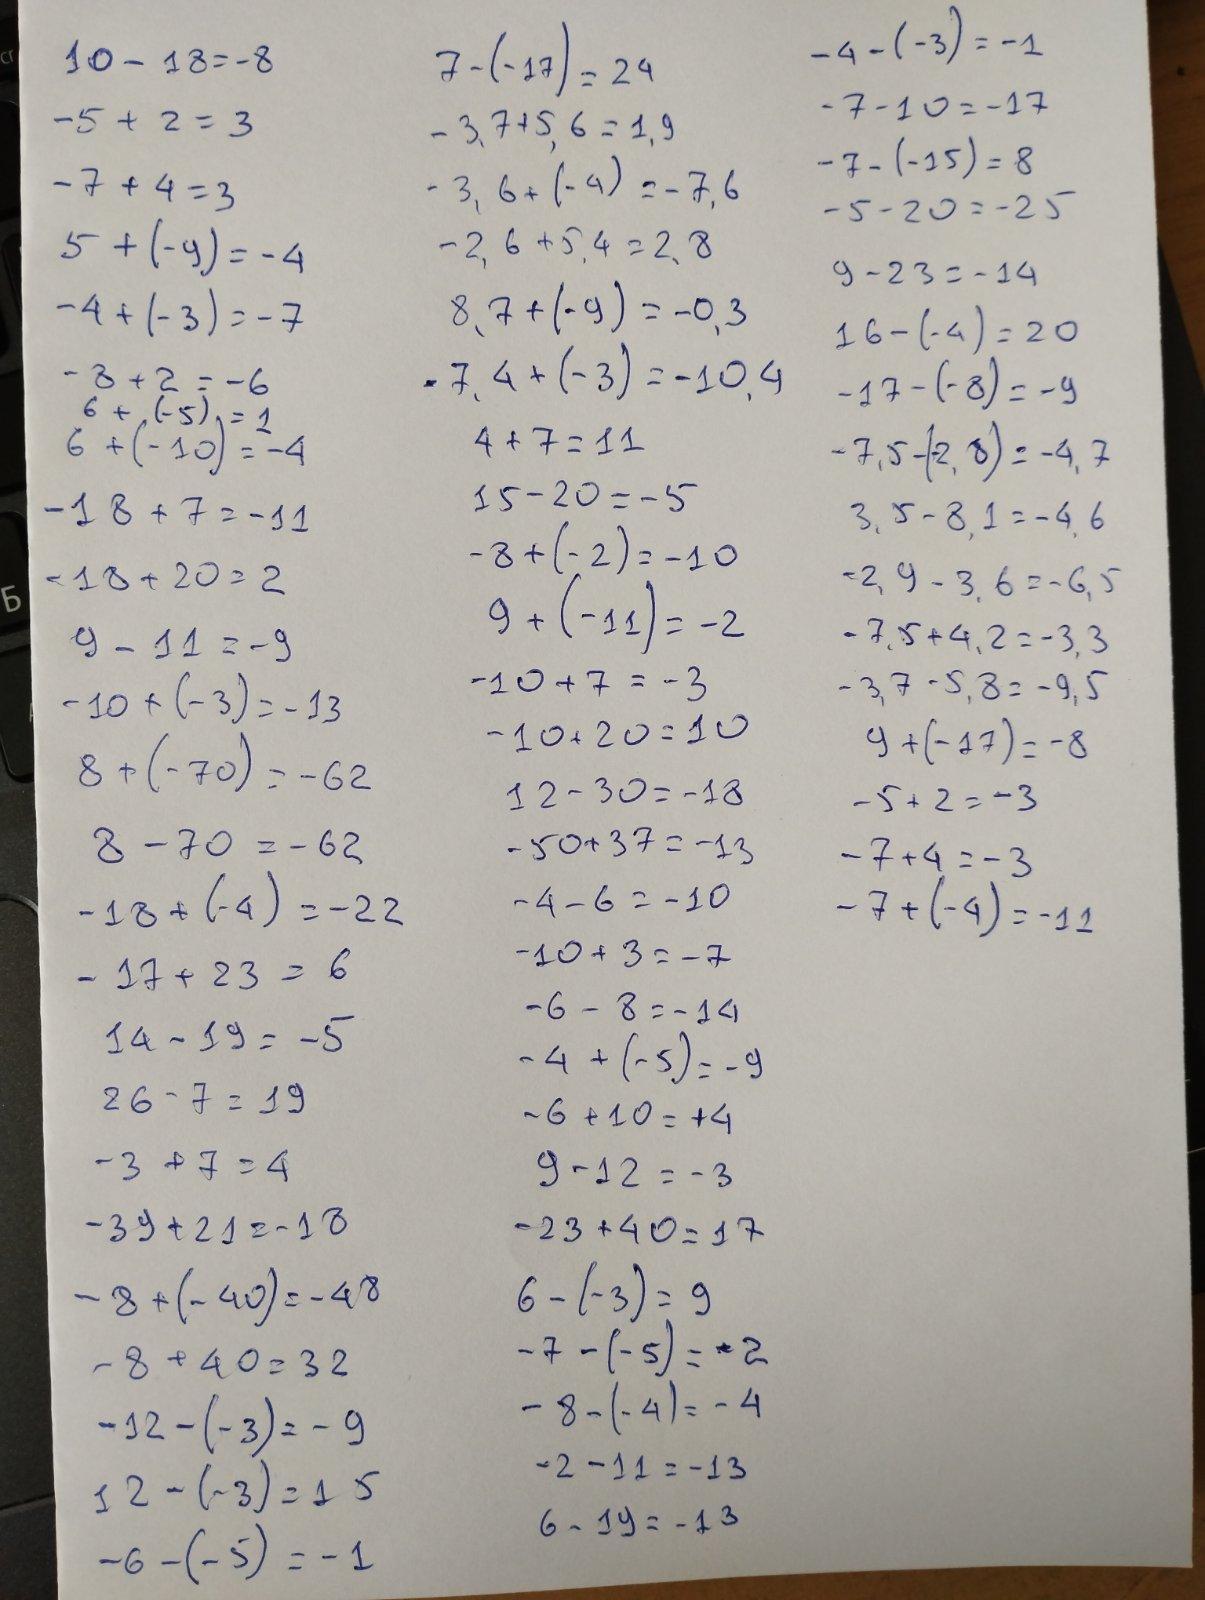 10 - 18 = -8
-5 + 2 = 3
-7 + 4 = 3
5 + (-9) = -4
-4 + (-3) = -7
-8 + 2 = -6
6 + (-5) = 1
6 + (-10) = -4
-18 + 7 = -11
-18 + 20 = 2
9 - 11 = -9
-10 + (-3) = -13
8 + (-70) = -62
8 - 70 = -62
-18 + (-4) = -22
-17 + 23 = 6
14 - 19 = -5
26 - 7 = 19
-3 + 7 = 4
-39 + 21 = -18
-8 + (-40) = -48
-8 + 40 = 32
-12 - (-3) = -9
12 - (-3) = 15
-6 - (-5) = -1
7 - (-17) = 24
-3,7 + 5,6 = 1,9
-3,6 + (-4) = -7,6
-2,6 + 5,4 = 2,8
8,7 + (-9) = -0,3
-7,4 + (-3) = -10,4
4 + 7 = 11
15 - 20 = -5
-8 + (-2) = -10
9 + (-11) = -2
-10 + 7 = -3
-10 + 20 = 10
12 - 30 = -18
-50 + 37 = -13
-4 - 6 = -10
-10 + 3 = -7
-6 - 8 = -14
-4 + (-5) = -9
-6 + 10 = +4
9 - 12 = -3
-23 + 40 = 17
6 - (-3) = 9
-7 - (-5) = -2
-8 - (-4) = -4
-2 - 11 = -13
6 - 19 = -13
-4 - (-3) = -1
-7 - 10 = -17
-7 - (-15) = 8
-5 - 20 = -25
9 - 23 = -14
16 - (-4) = 20
-17 - (-8) = -9
-7,5 - (-2,8) = -4,7
3,5 - 8,1 = -4,6
-2,9 - 3,6 = -6,5
-7,5 + 4,2 = -3,3
-3,7 - 5,8 = -9,5
9 + (-17) = -8
-5 + 2 = -3
-7 + 4 = -3
-7 + (-4) = -11
Б